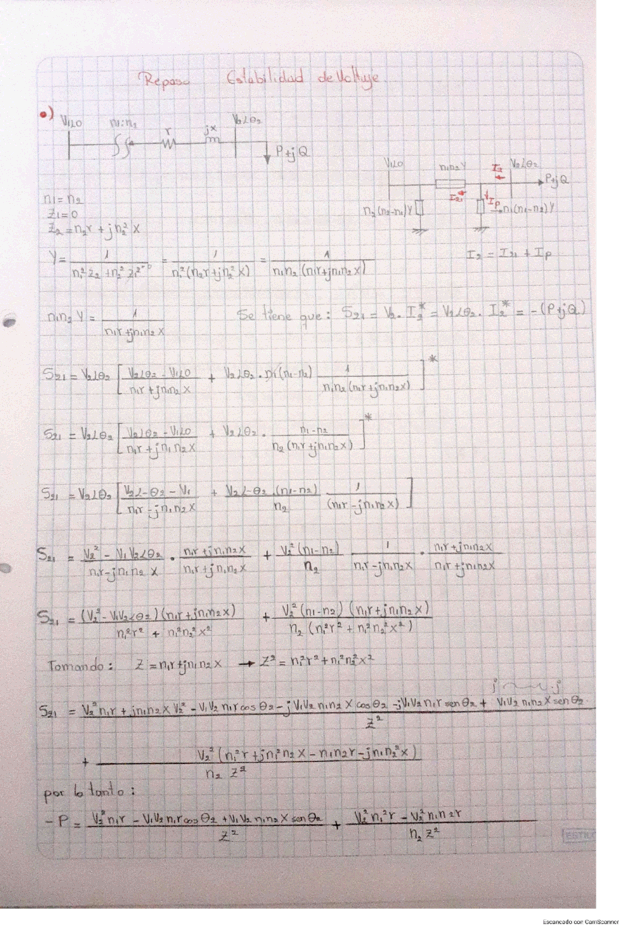 Repaso Estabilidad de Voltaje
•)
V1∠0 n1:n2 r jx V2∠θ2
P+jQ
V1∠0 n1n2Y I2 V2∠θ2
P+jQ
I21 Ip
n2(n2-n1)Y n1(n1-n2)Y
n1 = n2
Z1=0
Z2 = n2r + jn2²X
I2 = I21 + Ip
Y = 1/(n1²Z2 + n2²Z1) = 1/(n1²(n2r+jn2²X)) = 1/(n1n2(n1r+jn1n2X))
n1n2Y = 1/(n1r+jn1n2X) Se tiene que: S21 = V2 . I2* = V2∠θ2 . I2* = -(P+jQ)
S21 = V2∠θ2 [ (V2∠θ2 - V1∠0)/(n1r+jn1n2X) + V2∠θ2 . n1(n1-n2) 1/(n1n2(n1r+jn1n2X)) ]*
S21 = V2∠θ2 [ (V2∠θ2 - V1∠0)/(n1r+jn1n2X) + V2∠θ2 . (n1-n2)/(n2(n1r+jn1n2X)) ]*
S21 = V2∠θ2 [ (V2∠-θ2 - V1)/(n1r-jn1n2X) + (V2∠-θ2.(n1-n2))/n2 1/(n1r-jn1n2X) ]
S21 = (V2² - V1V2∠θ2)/(n1r-jn1n2X) . (n1r+jn1n2X)/(n1r+jn1n2X) + (V2²(n1-n2))/n2 1/(n1r-jn1n2X) . (n1r+jn1n2X)/(n1r+jn1n2X)
S21 = ((V2²-V1V2∠θ2)(n1r+jn1n2X))/(n1²r² + n1²n2²X²) + (V2²(n1-n2)(n1r+jn1n2X))/(n2(n1²r²+n1²n2²X²))
Tomando: Z = n1r+jn1n2X → Z² = n1²r²+n1²n2²X²
S21 = (V2²n1r + jn1n2XV2² - V1V2n1r cosθ2 - jV1V2n1n2Xcosθ2 - jV1V2n1r senθ2 + V1V2n1n2X senθ2)/Z²
+ (V2²(n1²r+jn1²n2X-n1n2r-jn1n2²X))/(n2 Z²)
por lo tanto:
-P = (V2²n1r - V1V2n1r cosθ2 + V1V2n1n2X senθ2)/Z² + (V2²n1²r - V2²n1n2r)/(n2 Z²)
Escaneado con CamScanner